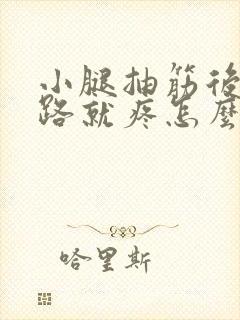 小腿抽筋後
路就疼怎麼
哈里斯